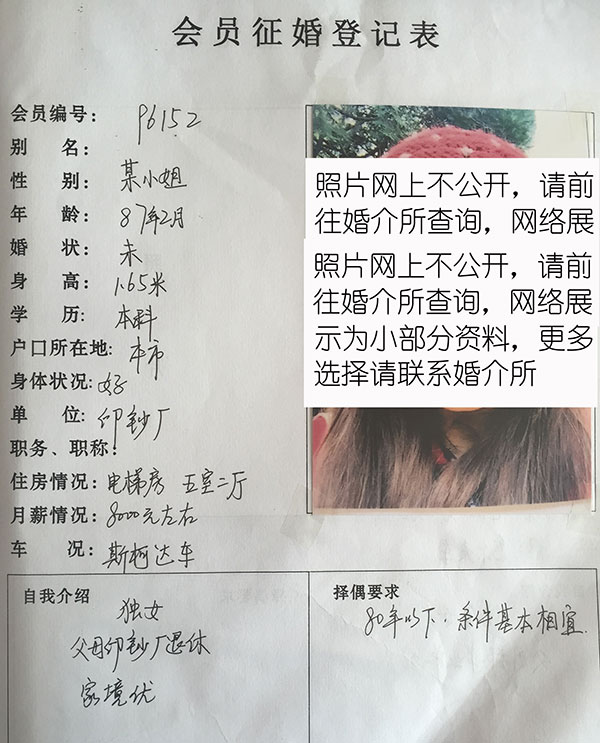 会员征婚登记表
会员编号: 96152
别 名:
性 别: 某小姐
年 龄: 87年2月
婚 状: 未
身 高: 1.65米
学 历: 本科
户口所在地: 本市
身体状况: 好
单 位: 印钞厂
职务、职称:
住房情况: 电梯房 五室二厅
月薪情况: 8000元左右
车 况: 斯柯达车
照片网上不公开，请前
往婚介所查询，网络展
照片网上不公开，请前
往婚介所查询，网络展
示为小部分资料，更多
选择请联系婚介所
自我介绍
独女
父母印钞厂退休
家境优
择偶要求
80年以下．条件基本相宜